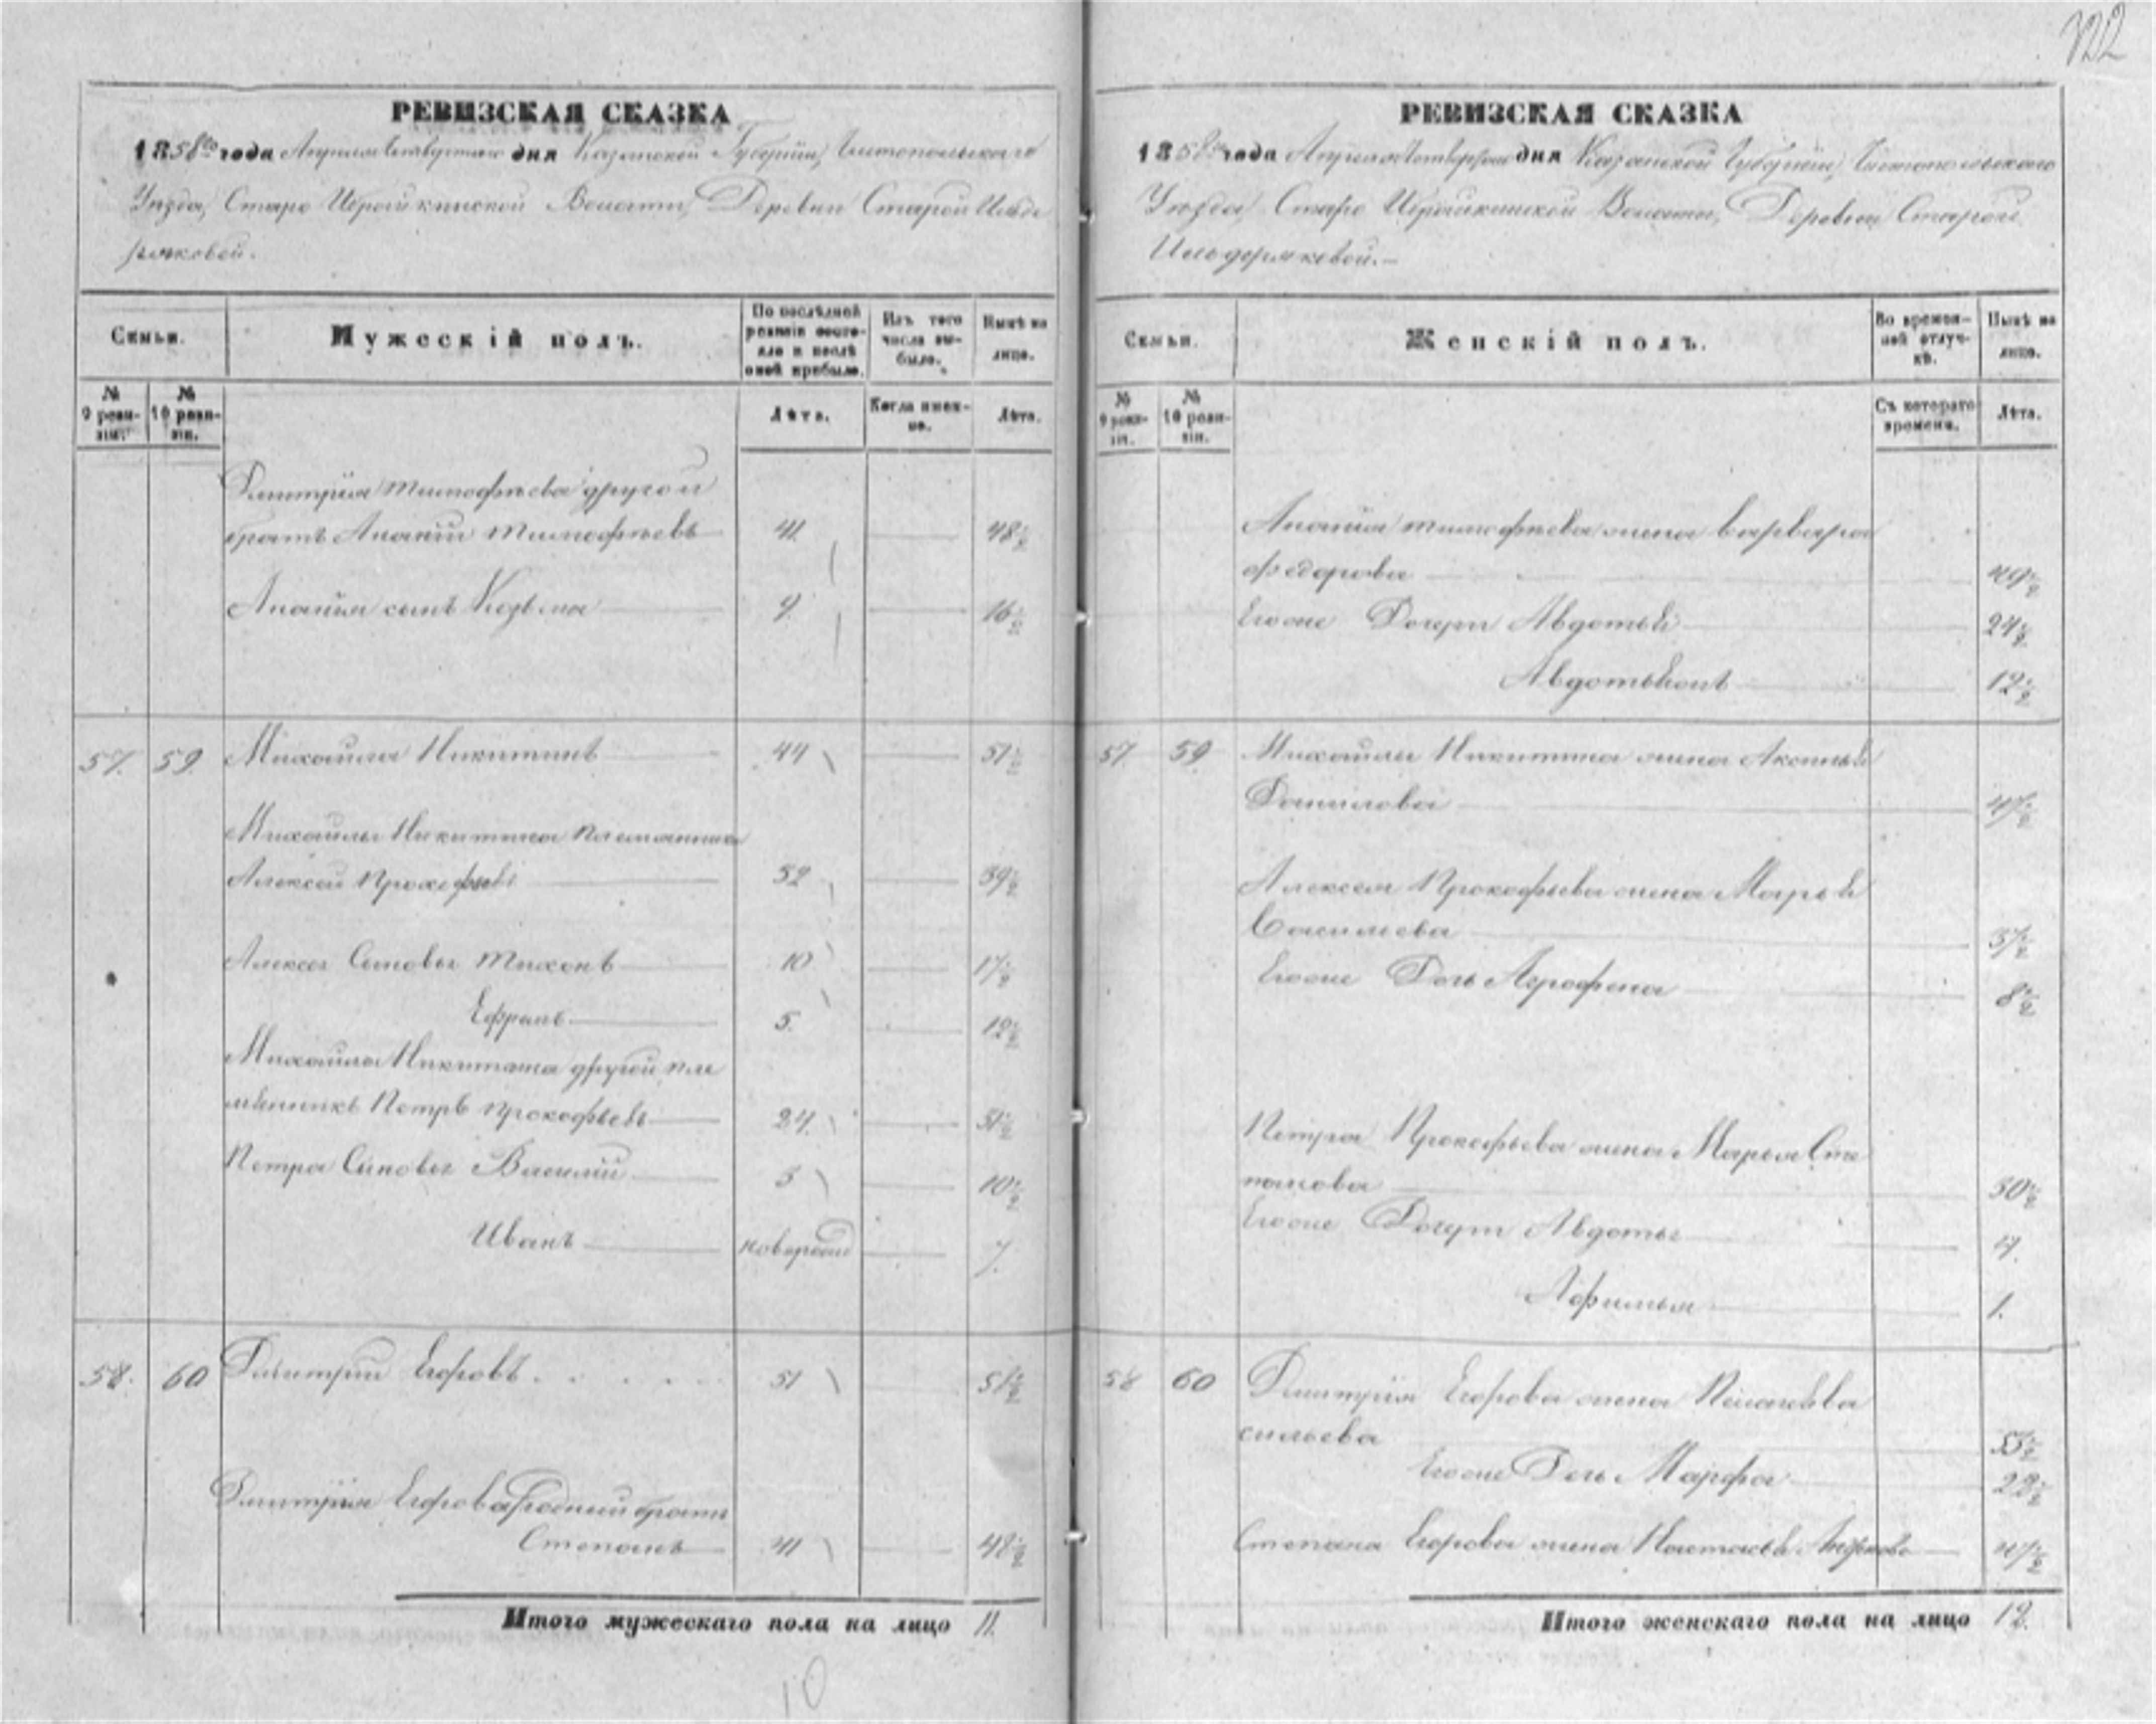 122
РЕВИЗСКАЯ СКАЗКА
1858го года Апреля дня Казанской Губернии, Чистопольского
Уезда, Старо Иброикинской Волости, Деревни Старой Ильде
ряковой.
Семьи.
Мужескій полъ.
По послѣдней ревизіи состояло и послѣ оной прибыло.
Изъ того числа выбыло.
Нынѣ на лицо.
№ 9 ревизіи.
№ 10 ревизіи.
Лѣта.
Когда именно.
Лѣта.
Дмитрія Тимофѣева другой
братъ Ананій Тимофѣевъ 41 48½
Ананія сынъ Козьма 9 16½
57. 59. Михайла Никитинъ 44 51½
Михайлы Никитина племянники
Алексей Прокофьевъ 32 39½
Алексея Сыновья Тихонъ 10 17½
Ефремъ 5. 12½
Михайла Никитина другой пле
мянникъ Петръ Прокофьевъ 24. 31½
Петра Сыновья Василий 3 10½
Иванъ новорожд 7.
58. 60 Дмитрий Егоровъ 51 58½
Дмитрія Егорова родный братъ
Степанъ 41 48½
Итого мужескаго пола на лицо 11.
10
РЕВИЗСКАЯ СКАЗКА
1858го года Апреля дня Казанской Губернии, Чистопольского
Уезда, Старо Иброикинской Волости, Деревни Старой
Ильдеряковой.
Семьи.
Женскій полъ.
Во временной отлучкѣ.
Нынѣ на лицо.
№ 9 ревизіи.
№ 10 ревизіи.
Съ котораго времени.
Лѣта.
Ананія Тимофѣева жена Варвара
Федорова 49½
Егоже Дочери Авдотья 24½
12½
57 59 Михайлы Никитина жена Аксинья
Данилова 47½
Алексея Прокофьева жена Марья
Васильева 37½
Егоже Дочь Агрофена 8½
Петра Прокофьева жена Марья Сте
панова 30½
Егоже Дочери Авдотья 4.
Афимья 1.
58 60 Дмитрія Егорова жена Пелагея Ва
сильева 55½
Егоже Дочь Марфа 22½
Степана Егорова жена Настасья 47½
Итого женскаго пола на лицо 12.